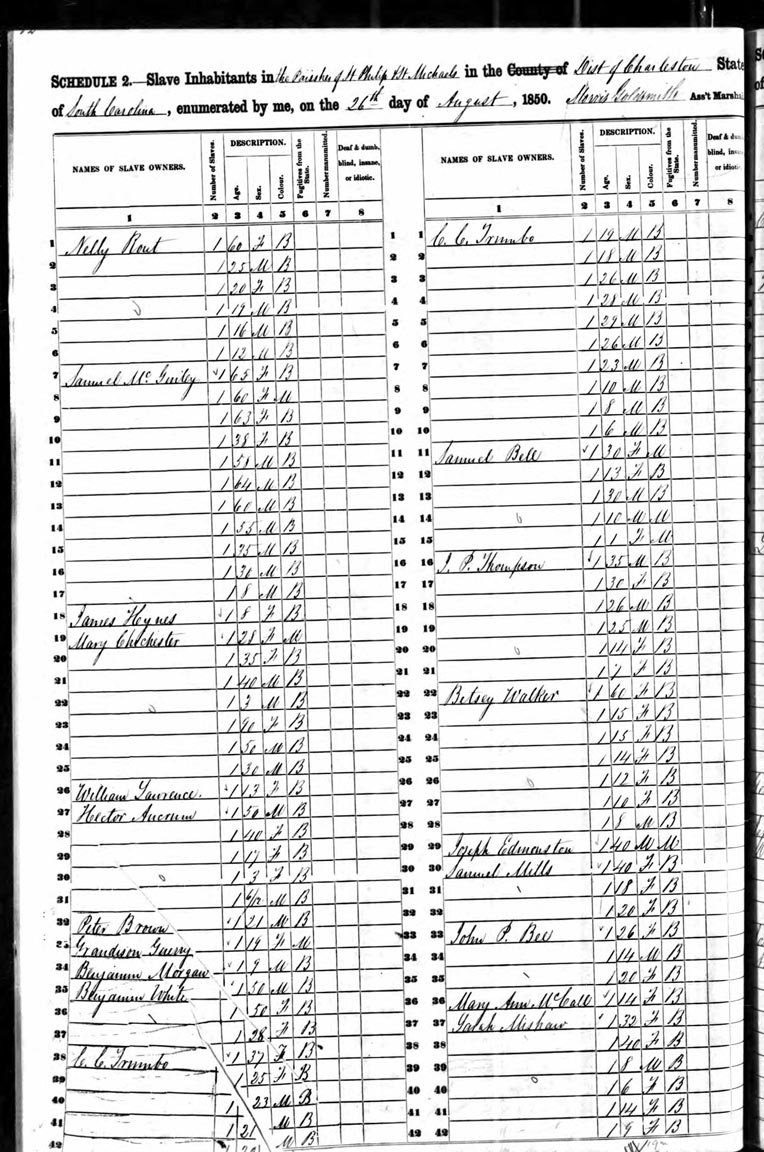 SCHEDULE 2.—Slave Inhabitants in the Parishes of St Philip & St Michaels in the County of Dist of Charleston State
of South Carolina, enumerated by me, on the 26th day of August, 1850. Morris Goldsmith Ass't Marshal
NAMES OF SLAVE OWNERS. Number of Slaves. DESCRIPTION. Age. Sex. Colour. Fugitives from the State. Number manumitted. Deaf & dumb, blind, insane, or idiotic.
1 2 3 4 5 6 7 8
1 Nelly Rout 1 60 F B
2 1 25 M B
3 1 20 F B
4 1 19 M B
5 1 16 M B
6 1 12 M B
7 Samuel 1 65 F B
8 1 60 F M
9 1 63 F B
10 1 38 F B
11 1 58 M B
12 1 64 M B
13 1 60 M B
14 1 55 M B
15 1 35 M B
16 1 30 M B
17 1 8 M B
18 James Heynes 1 8 F B
19 Mary Chichester 1 28 F M
20 1 35 F B
21 1 40 M B
22 1 3 M B
23 1 90 F B
24 1 50 M B
25 1 30 M B
26 William Lawrence. 1 13 F B
27 Hector Ancrum 1 50 M B
28 1 40 F B
29 1 17 F B
30 1 3 F B
31 1 6/12 M B
32 Peter Brown 1 21 M B
Grandison Guerry 1 19 F M
34 Benjamin Morgan 1 9 M B
35 Benjamin White 1 50 M B
36 1 50 F B
37 1 28 F B
38 C. C. Trumbo 1 37 F B
39 1 25 F B
40 1 23 M B
41 1 21 M B
42 1 M B
NAMES OF SLAVE OWNERS. Number of Slaves. DESCRIPTION. Age. Sex. Colour. Fugitives from the State. Number manumitted. Deaf & dumb, blind, insane, or idiotic.
1 2 3 4 5 6 7 8
1 C. C. Trumbo 1 19 M B
2 1 18 M B
3 1 26 M B
4 1 28 M B
5 1 29 M B
6 1 26 M B
7 1 23 M B
8 1 10 M B
9 1 8 M B
10 1 6 M B
11 Samuel Bell 1 30 F M
12 1 13 F B
13 1 30 M B
14 1 10 M M
15 1 1 F M
16 J. P. Thompson 1 35 M B
17 1 30 F B
18 1 26 M B
19 1 25 M B
20 1 14 F B
21 1 7 F B
22 Betsey Walker 1 60 F B
23 1 15 F B
24 1 15 F B
25 1 14 F B
26 1 12 F B
27 1 10 F B
28 1 8 M B
29 Joseph Edmonston 1 40 M M
30 Samuel Mills 1 40 F B
31 1 18 F B
32 1 20 F B
33 John P. Bee 1 26 F B
34 1 14 M B
35 1 20 F B
36 Mary Ann McCall 1 14 F B
37 Sarah Mishaw 1 32 F B
38 1 40 F B
39 1 8 M B
40 1 6 F B
41 1 14 F B
42 1 9 F B